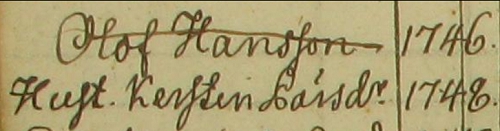 Olof Hansson 1746.
Hust. Kerstin Larsdr. 1748.